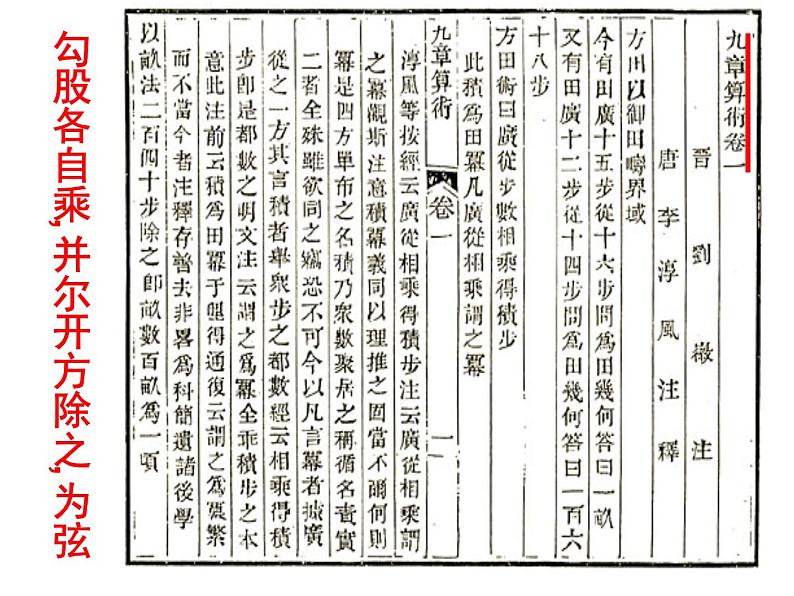 九章算術卷一
晉劉徽注
唐李淳風注釋
方田以御田疇界域
今有田廣十五步從十六步問爲田幾何答曰一畝
又有田廣十二步從十四步問爲田幾何答曰一百六
十八步
方田術曰廣從步數相乘得積步
此積爲田冪凡廣從相乘謂之冪
九章算術 卷一 一
淳風等按經云廣從相乘得積步注云廣從相乘謂
之冪觀斯注意積冪義同以理推之固當不爾何則
冪是四方單布之名積乃衆數聚居之稱循名責實
二者全殊雖欲同之竊恐不可今以凡言冪者據廣
從之一方其言積者舉衆步之都數經云相乘得積
步卽是都數之明文注云謂之爲冪全乖積步之本
意此注前云積爲田冪于理得通復云謂之爲冪繁
而不當今者注釋存善去非畧爲科簡遺諸後學
以畝法二百四十步除之卽畝數百畝爲一頃
勾股各自乘,并尔开方除之,为弦